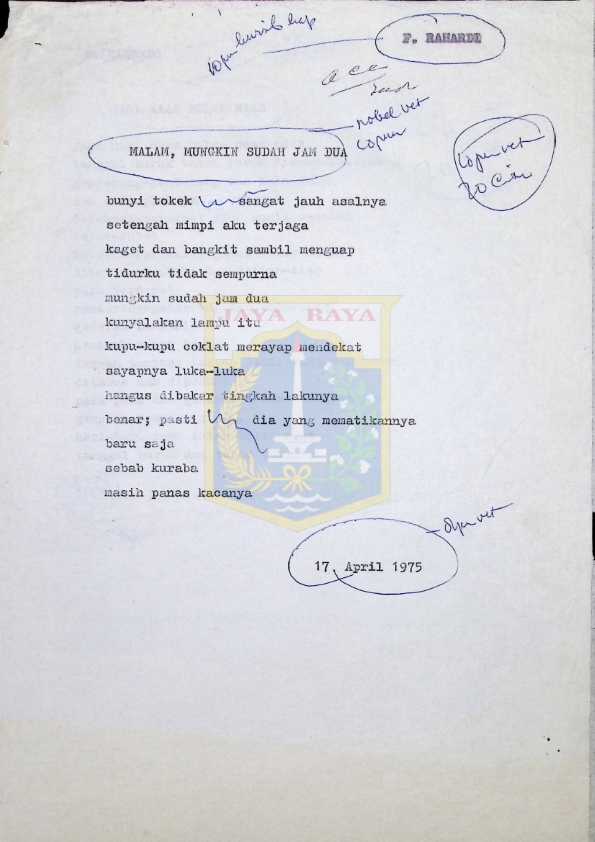 F. RAHARDI
acc
10pn vet
MALAM, MUNGKIN SUDAH JAM DUA
bunyi tokek sangat jauh asalnya
setengah mimpi aku terjaga
kaget dan bangkit sambil menguap
tidurku tidak sempurna
mungkin sudah jam dua
JAYA RAYA
kunyalakan lampu itu
kupu-kupu coklat merayap mendekat
sayapnya luka-luka
hangus dibakar tingkah lakunya
benar; pasti dia yang mematikannya
baru saja
sebab kuraba
masih panas kacanya
17 April 1975